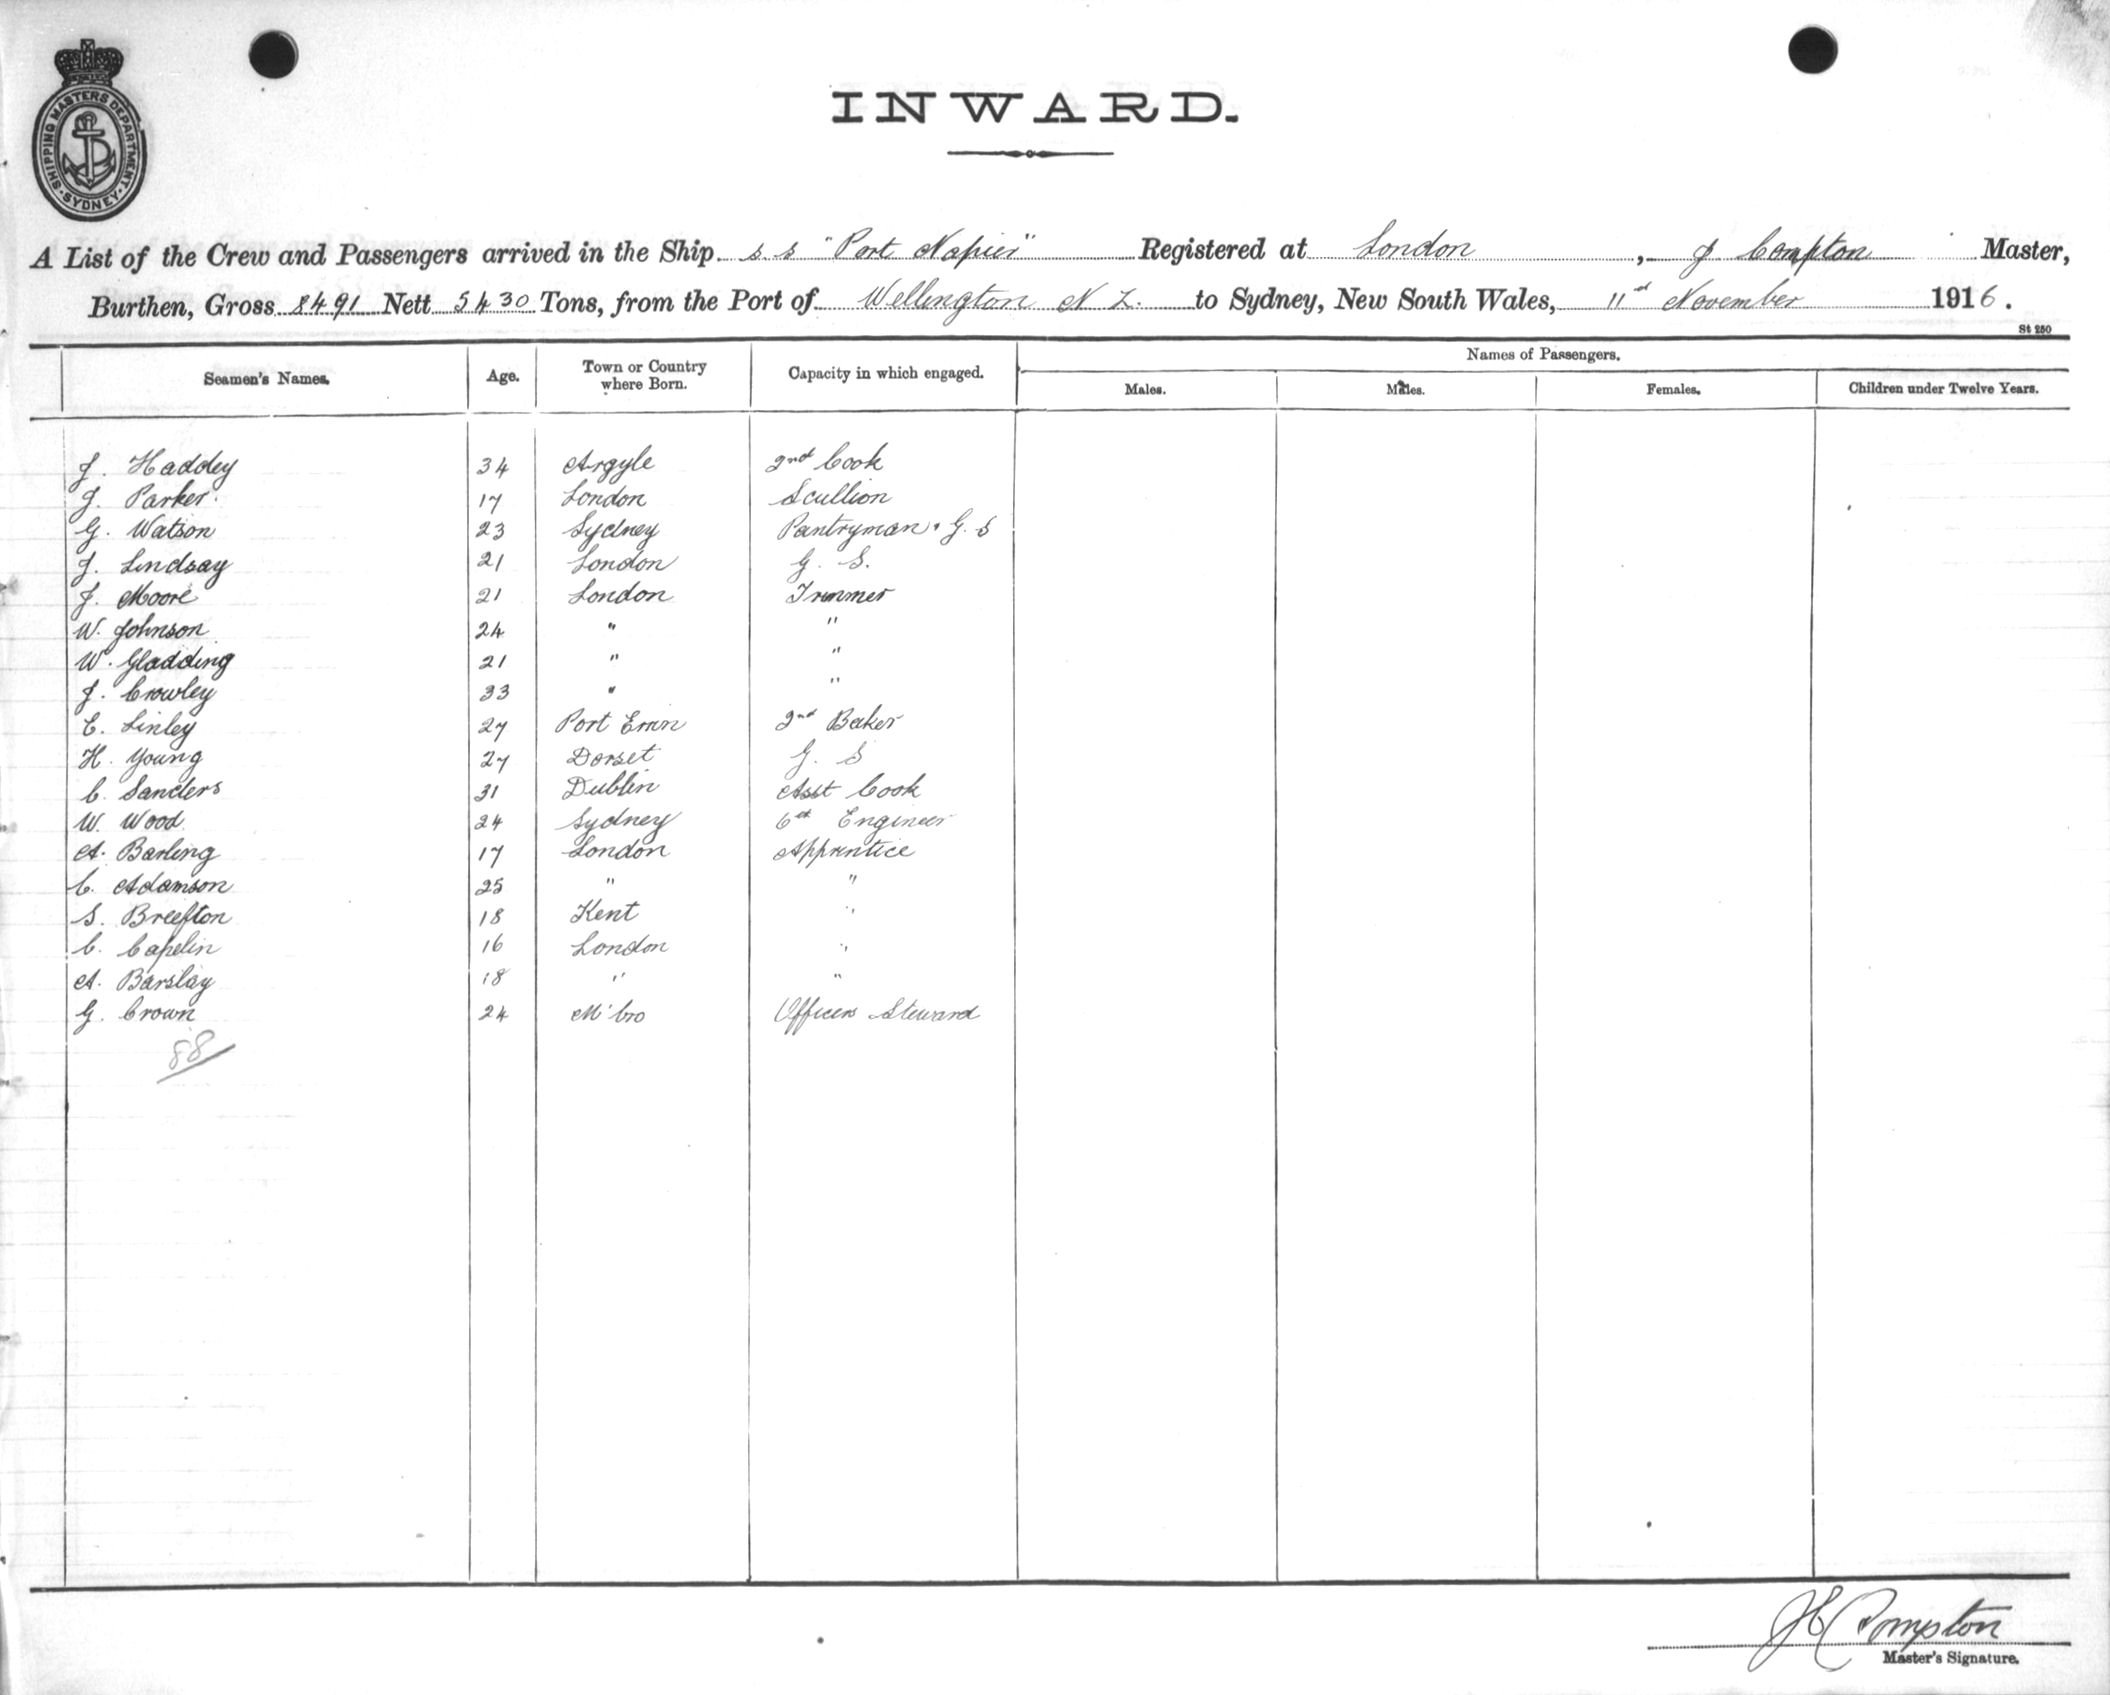 SHIPPING MASTERS DEPARTMENT SYDNEY
INWARD.
A List of the Crew and Passengers arrived in the Ship s s "Port Napier" Registered at London, J Compton Master,
Burthen, Gross 8491 Nett 5430 Tons, from the Port of Wellington N Z. to Sydney, New South Wales, 11 November 1916.
St 250
Seamen's Names. Age. Town or Country where Born. Capacity in which engaged. Names of Passengers.
Males. Males. Females. Children under Twelve Years.
J. Haddey 34 Argyle 2nd Cook
J. Parker 17 London Scullion
G. Watson 23 Sydney Pantryman & G. S
J. Lindsay 21 London G. S.
J. Moore 21 London Trimmer
W. Johnson 24 " "
W. Gladding 21 " "
J. Crowley 33 " "
E. Linley 27 Port Erin 2nd Baker
H. Young 27 Dorset G. S
C. Sanders 31 Dublin Asst Cook
W. Wood 24 Sydney 6th Engineer
A. Barling 17 London Apprentice
C. Adamson 25 " "
S. Breefton 18 Kent "
C. Capelin 16 London "
A. Barslay 18 " "
G. Crown 24 M'bro Officers Steward
88
Compton
Master's Signature.